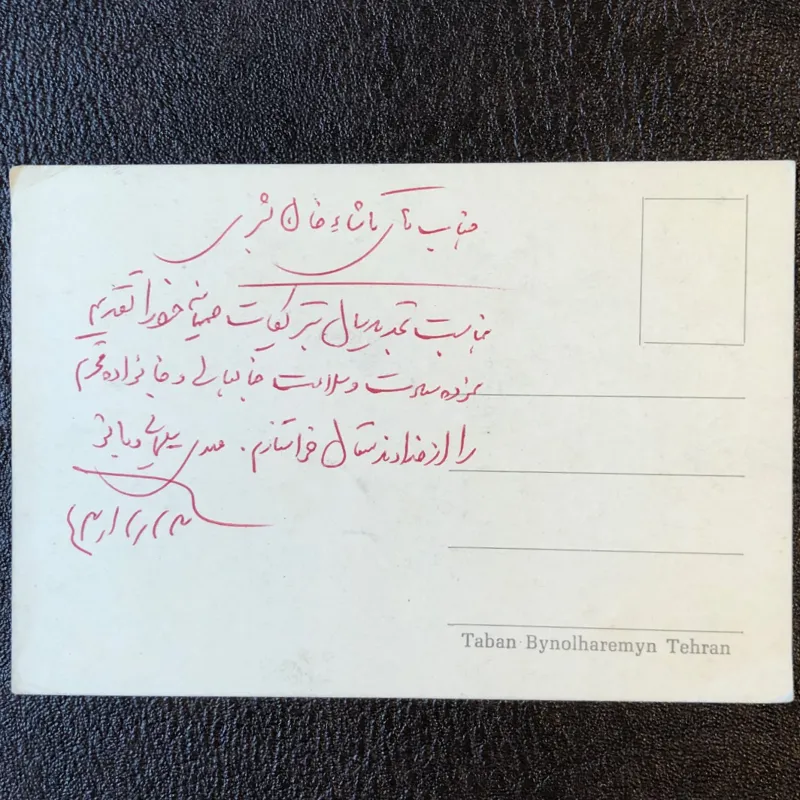 جناب آقای ماشاءاله خان بشری
بمناسبت تجدید سال تبریکات صمیمانه خود را تقدیم
نموده سعادت و سلامت جنابعالی و خانواده محترم
را از خداوند متعال خواستارم. مهدی
Taban Bynolharemyn Tehran